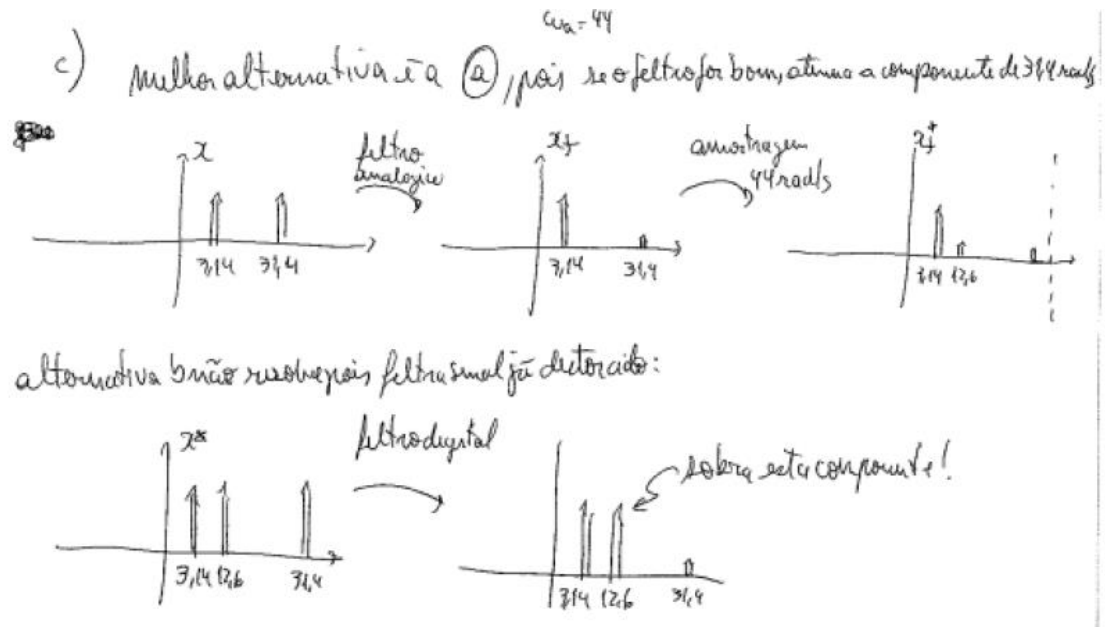 ωa = 44
c) melhor alternativa é a (a), pois se o filtro for bom, atenua a componente de 31,4 rad/s
x filtro analógico xf amostragem 44 rad/s xf*
3,14 31,4 3,14 31,4 3,14 12,6
alternativa b não resolve pois filtra sinal já distorcido:
x* filtro digital sobra esta componente!
3,14 12,6 31,4 3,14 12,6 31,4